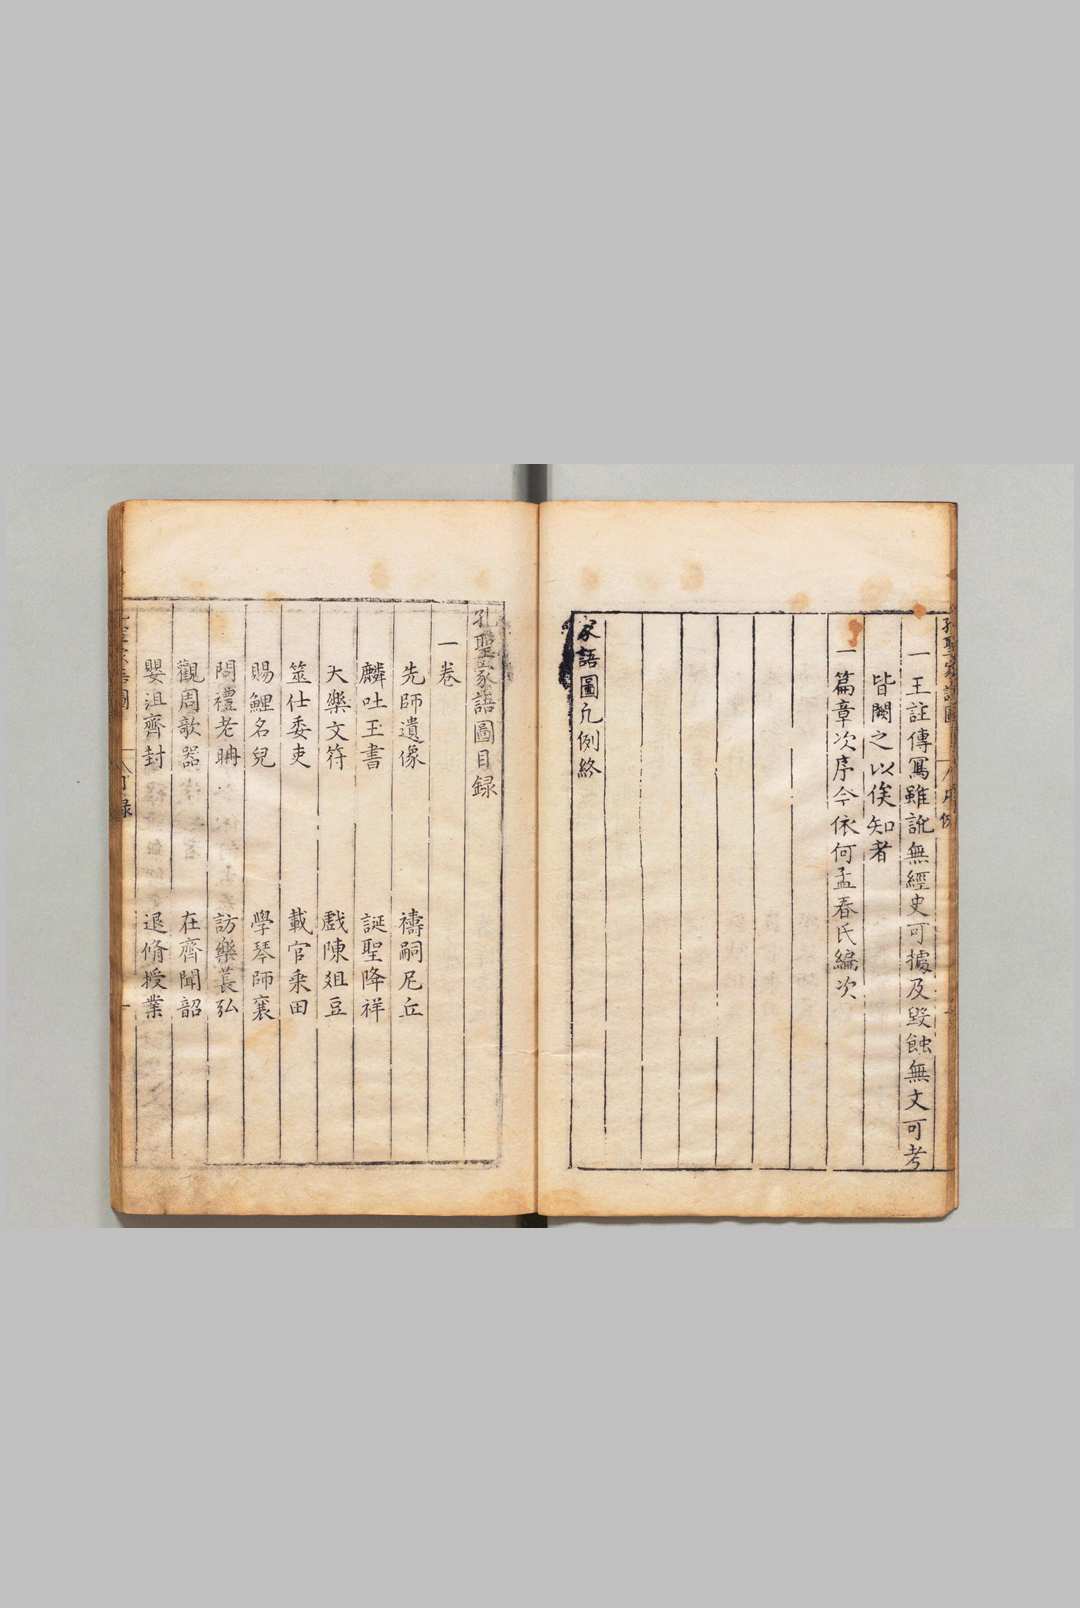 孔聖家語圖
一王註傳寫雖訛無經史可據及毀蝕無文可考
皆闕之以俟知者
一篇章次序今依何孟春氏編次
家語圖凡例終
孔聖家語圖目録
一卷
先師遺像 禱嗣尼丘
麟吐玉書 誕聖降祥
大樂文符 戲陳俎豆
筮仕委吏 載官乘田
賜鯉名兒 學琴師襄
問禮老聃 訪樂萇弘
觀周欹器 在齊聞韶
嬰沮齊封 退脩授業
目録
一